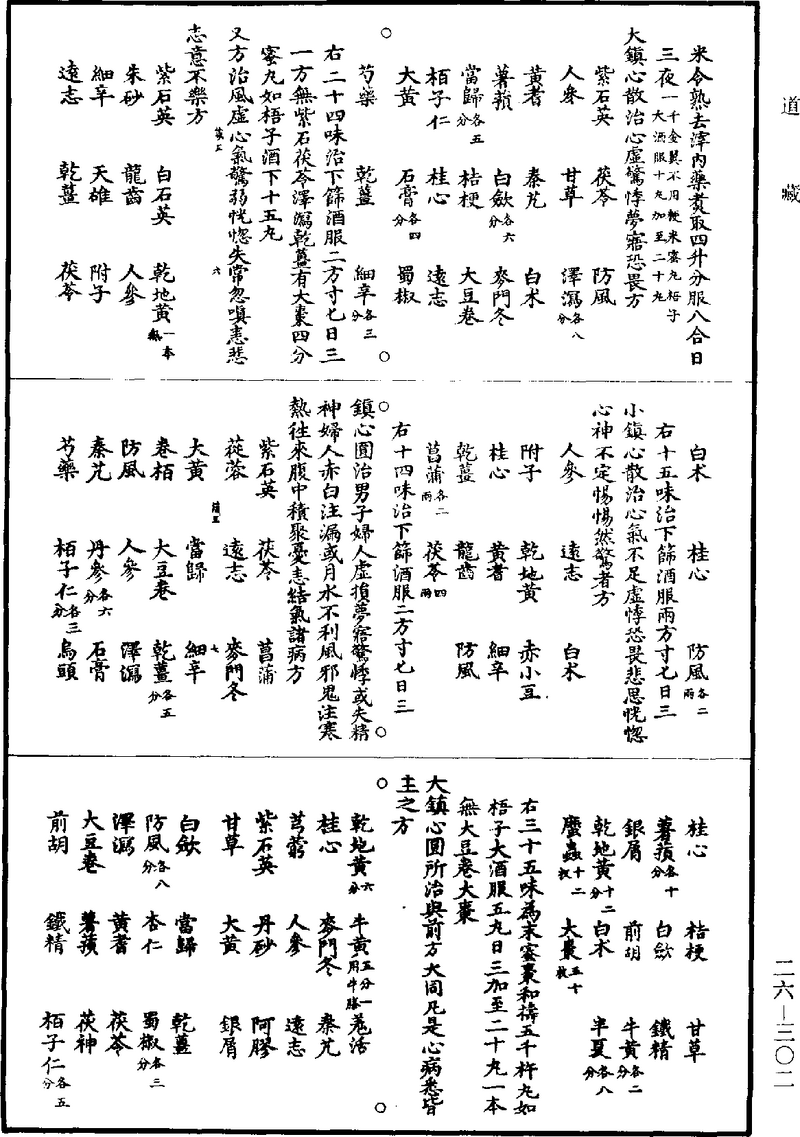 道藏
米令熟去滓內藥煮取四升分服八合日
三夜一千金翼不用粳米蜜丸梧子大酒服十丸加至二十丸
大鎮心散治心虛驚悸夢寤恐畏方
紫石英 茯苓 防風
人參 甘草 澤瀉各八分
黃耆 秦艽 白朮
薯蕷 白歛各六分 麥門冬
當歸各五分 桔梗 大豆卷
栢子仁 桂心 遠志
大黃 石膏各四分 蜀椒
芍藥 乾薑 細辛各三分
右二十四味治下篩酒服二方寸七日三
一方無紫石茯苓澤瀉乾薑有大棗四分
蜜丸如梧子酒下十五丸
又方治風虛心氣驚弱恍惚失常忽嗔恚悲
志意不樂方
紫石英 白石英 乾地黃一本熟
朱砂 龍齒 人參
細辛 天雄 附子
遠志 乾薑 茯苓
白朮 桂心 防風各二兩
右十五味治下篩酒服兩方寸七日三
小鎮心散治心氣不足虛悸恐畏悲思恍惚
心神不定惕惕然驚者方
人參 遠志 白朮
附子 乾地黃 赤小豆
桂心 黃耆 細辛
乾薑 龍齒 防風
菖蒲各二兩 茯苓四兩
右十四味治下篩酒服二方寸七日三
鎮心圓治男子婦人虛損夢寤驚悸或失精
神婦人赤白注漏或月水不利風邪鬼注寒
熱往來腹中積聚憂恚結氣諸病方
紫石英 茯苓 菖蒲
蓯蓉 遠志 麥門冬
大黃 當歸 細辛
卷栢 大豆卷 乾薑各五分
防風 人參 澤瀉
秦艽 丹參各六分 石膏
芍藥 栢子仁各三分 烏頭
桂心 桔梗 甘草
薯蕷各十分 白歛 鐵精
銀屑 前胡 牛黃各二分
乾地黃十二分 白朮 半夏各八分
䗪蟲十二枚 大棗五十枚
右三十五味為末蜜棗和擣五千杵丸如
梧子大酒服五丸日三加至二十丸一本
無大豆卷大棗
大鎮心圓所治與前方大同凡是心病悉皆
主之方
乾地黃六分 牛黃五分一用牛膝 羌活
桂心 麥門冬 秦艽
芎藭 人參 遠志
紫石英 丹砂 阿膠
甘草 大黃 銀屑
白歛 當歸 乾薑
防風各八分 杏仁 蜀椒各三分
澤瀉 黃耆 茯苓
大豆卷 薯蕷 茯神
前胡 鐵精 栢子仁各五分
二六—三〇二